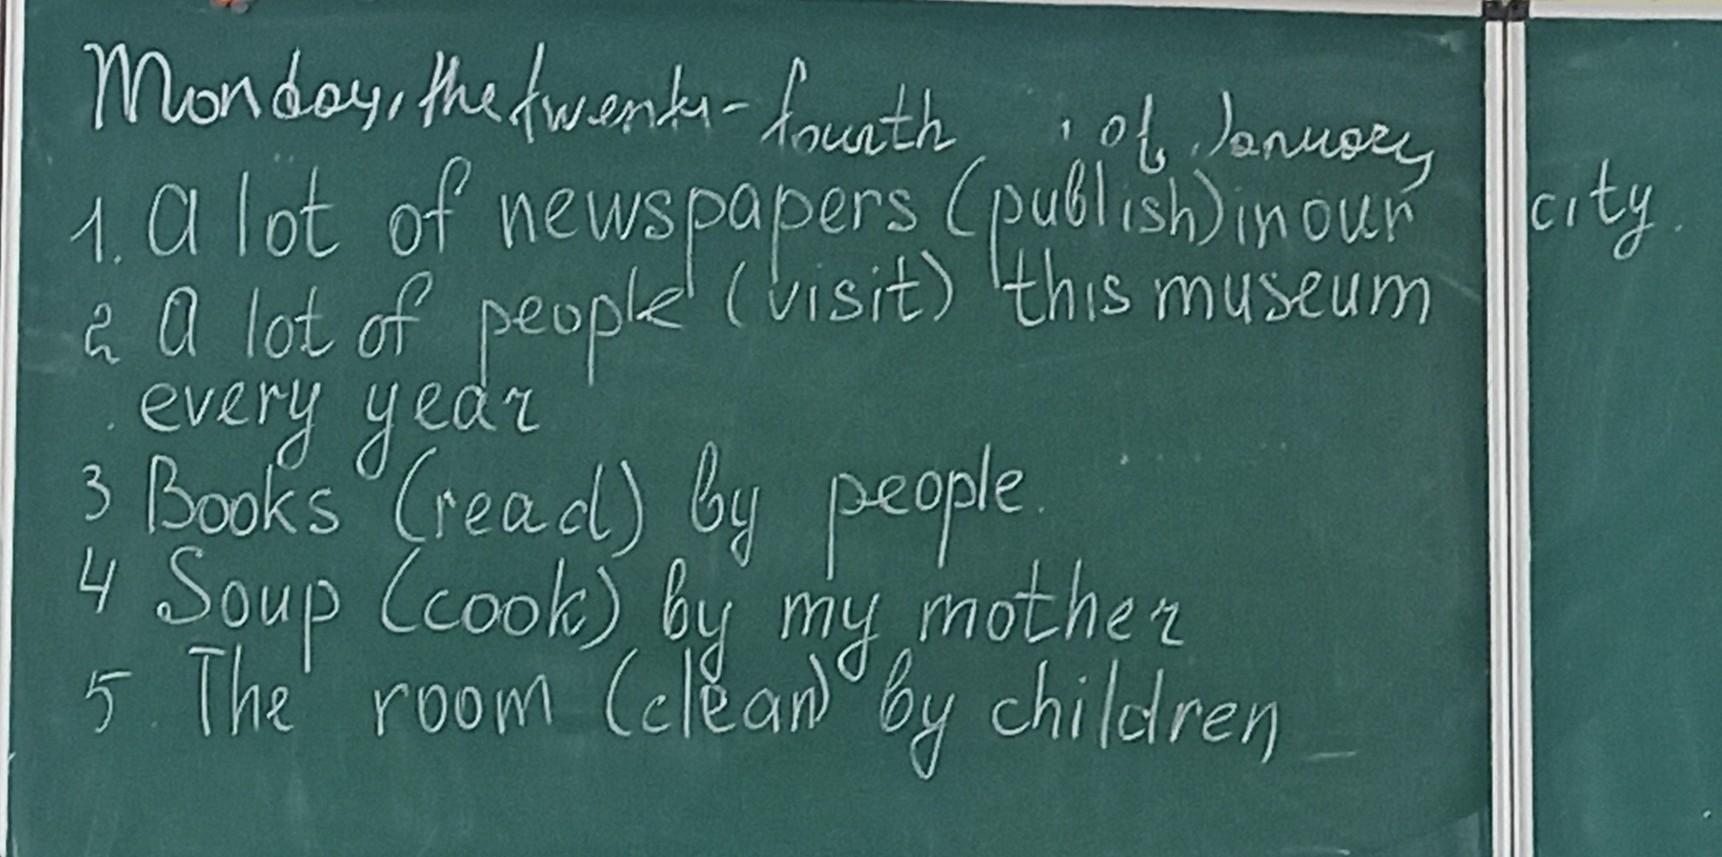 Monday, the twenty-fourth of January
1. A lot of newspapers (publish) in our city.
2 A lot of people (visit) this museum
every year
3 Books (read) by people.
4 Soup (cook) by my mother
5. The room (clean) by children